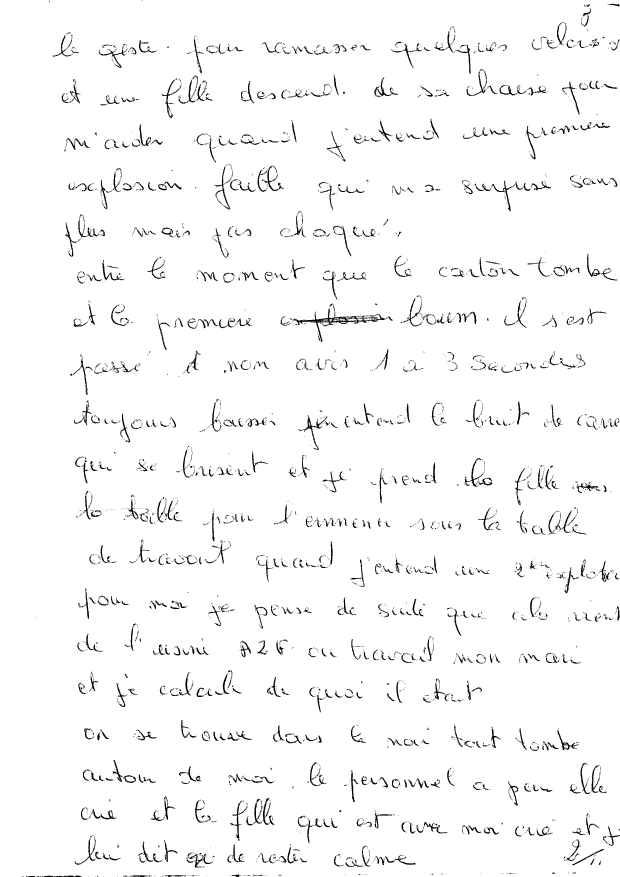 3
le geste. pour ramasser quelques
et une fille descend. de sa chaise pour
m'aider quand j'entend une premiere
explosion. faible qui m'a surpise sans
plus mais pas choqué,
entre le moment que le carton tombe
et la premiere explosion boum. il s'est
passé à mon avis 1 à 3 secondes
toujours baisser j'entend le bruit de
qui se brisent et je prend la fille
la table pour l'emmener sous la table
de travail quand j'entend une 2eme
pour moi je pense de suite que cela vient
de l'usine AZF ou travail mon mari
et je calcule de quoi il etait
on se trouve dans le noir tout tombe
autour de moi. le personnel a peur elle
crie et la fille qui est avec moi crie et j
lui dit de rester calme